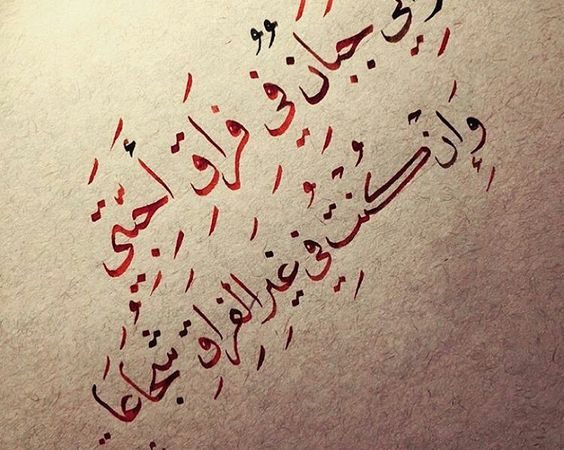 وإني جبانٌ في فِراقِ أَحِبَّتي
وَإِنْ كُنتُ في غَيرِ الفِراقِ شُجاعا